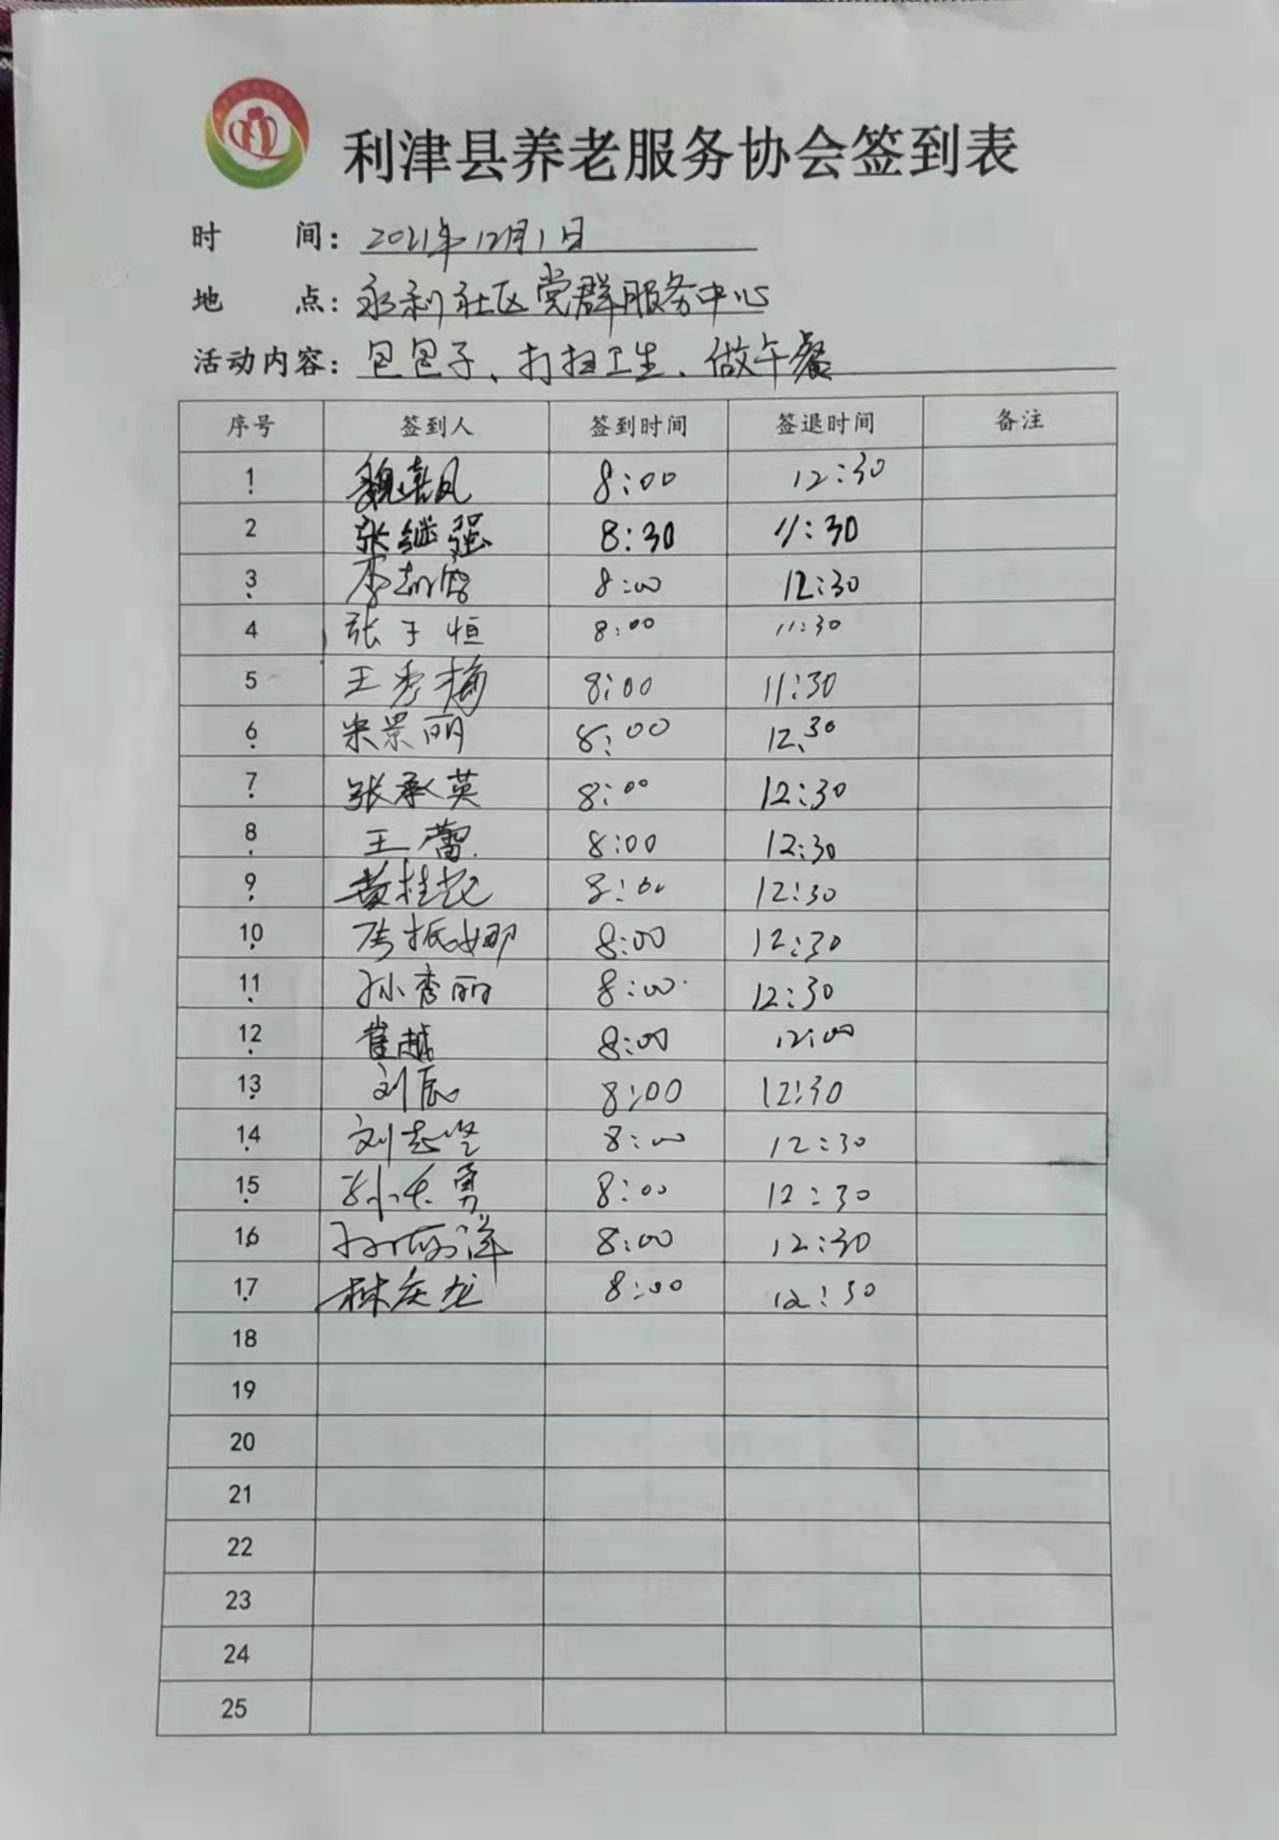 利津县养老服务协会签到表
时 间：2021年12月1日
地 点：永利社区党群服务中心
活动内容：包包子、打扫卫生、做午餐
序号 签到人 签到时间 签退时间 备注
1 魏 凤 8:00 12:30
2 张继强 8:30 11:30
3 李 8:00 12:30
4 张子恒 8:00 11:30
5 王秀梅 8:00 11:30
6 宋景丽 8:00 12:30
7 张承英 8:00 12:30
8 王蕾 8:00 12:30
9 黄桂 8:00 12:30
10 娜 8:00 12:30
11 孙秀丽 8:00 12:30
12 崔越 8:00 12:00
13 刘辰 8:00 12:30
14 刘志坚 8:00 12:30
15 勇 8:00 12:30
16 洋 8:00 12:30
17 林庆龙 8:00 12:30
18
19
20
21
22
23
24
25